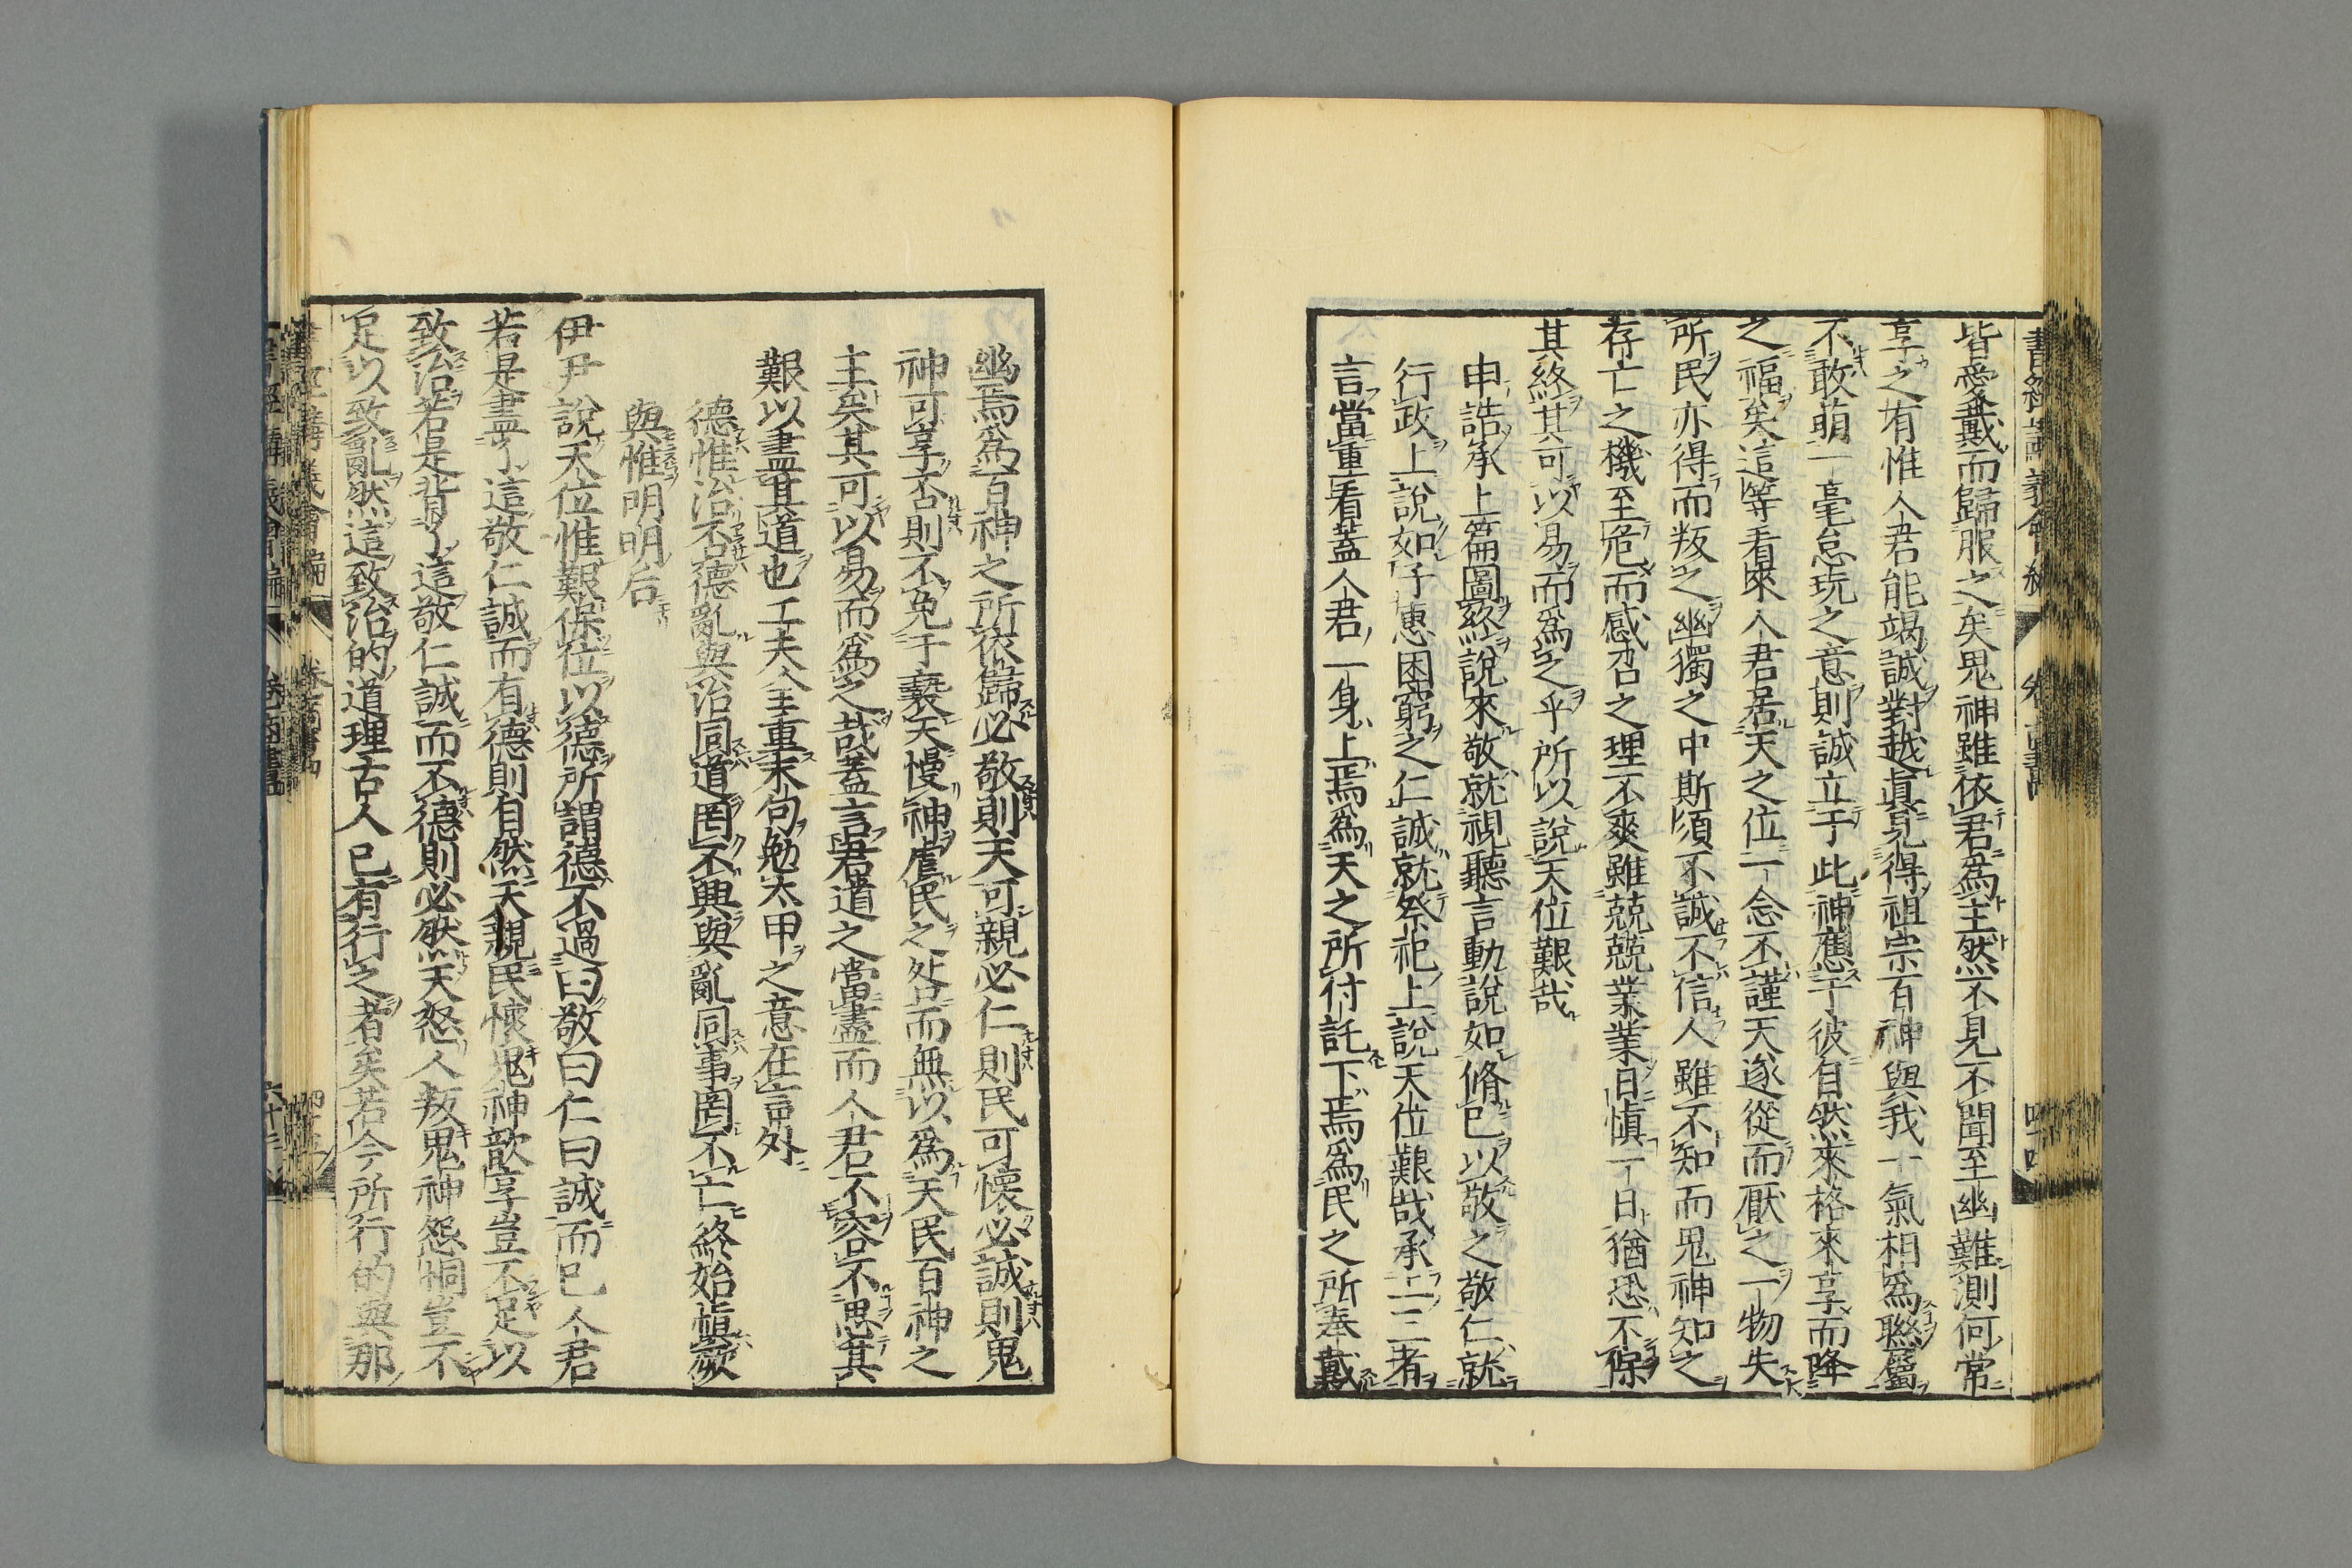 皆愛戴而歸服之矣鬼神雖依君爲主然不見不聞至幽難測何常
享之有惟人君能竭誠對越眞見得祖宗百神與我一氣相爲聯屬
不敢萌一毫怠玩之意則誠立于此神應于彼自然來格來享而降
之福矣這等看來人君居天之位一念不謹天遂從而厭之一物失
所民亦得而叛之幽獨之中斯須不誠不信人雖不知而鬼神知之
存亡之機至危而感召之理不爽雖兢兢業業日慎一日猶恐不保
其終其可以易而爲之乎所以說天位艱哉
申誥承上篇圖終說來敬就視聽言動說如脩己以敬之敬仁就
行政上說如子惠困窮之仁誠就祭祀上說天位艱哉承上三者
言當重看蓋人君一身上焉爲天之所付託下焉爲民之所奉戴
幽焉爲百神之所依歸必敬則天可親必仁則民可懷必誠則鬼
神可享否則不免于褻天慢神虐民之咎而無以爲天民百神之
主矣其可以易而爲之哉蓋言君道之當盡而人君不容不思其
艱以盡其道也工夫全重末句勉太甲之意在言外
德惟治否德亂與治同道罔不興與亂同事罔不亡終始慎厥
與惟明明后
伊尹說天位惟艱保位以德所謂德不過曰敬曰仁曰誠而已人君
若是盡了這敬仁誠而有德則自然天親民懷鬼神歆享豈不足以
致治若是背了這敬仁誠而不德則必然天怒人叛鬼神怨恫豈不
足以致亂然這致治的道理古人已有行之者矣若今所行的與那